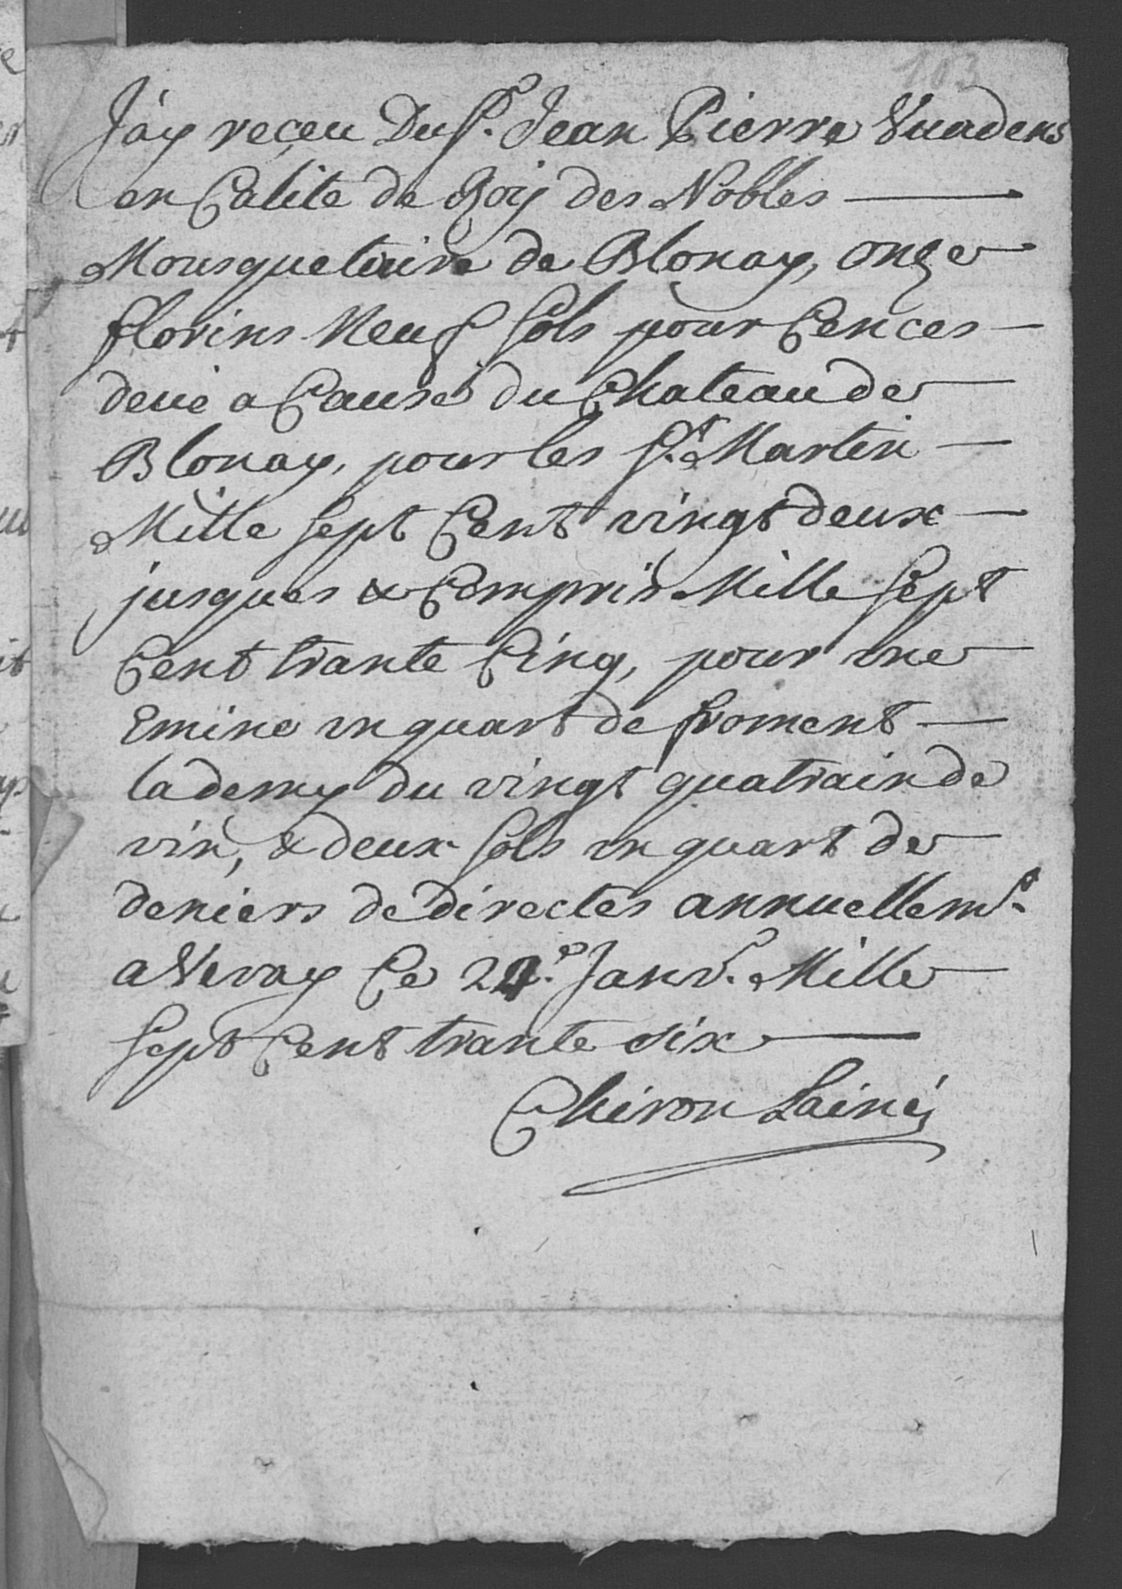 103
J'ay reçeu Du Sr. Jean Pierre Vuadens
en Calite de Roÿ des Nobles
Mousquetaire de Blonay, onze
florins Neuf sols pour Cences
deüe a Cause du Chateau de
Blonay, pour les St. Martin
Mille sept Cent vingt deux
jusques & Compris Mille sept
Cent trante Cinq, pour une
Emine un quart de froment
la demy du vingt quatrain de
vin, & deux sols un quart de
deniers de directes annuellemt.
a Vevay Ce 24e. Janvr. Mille
sept Cent trante six
Chiron Lainé